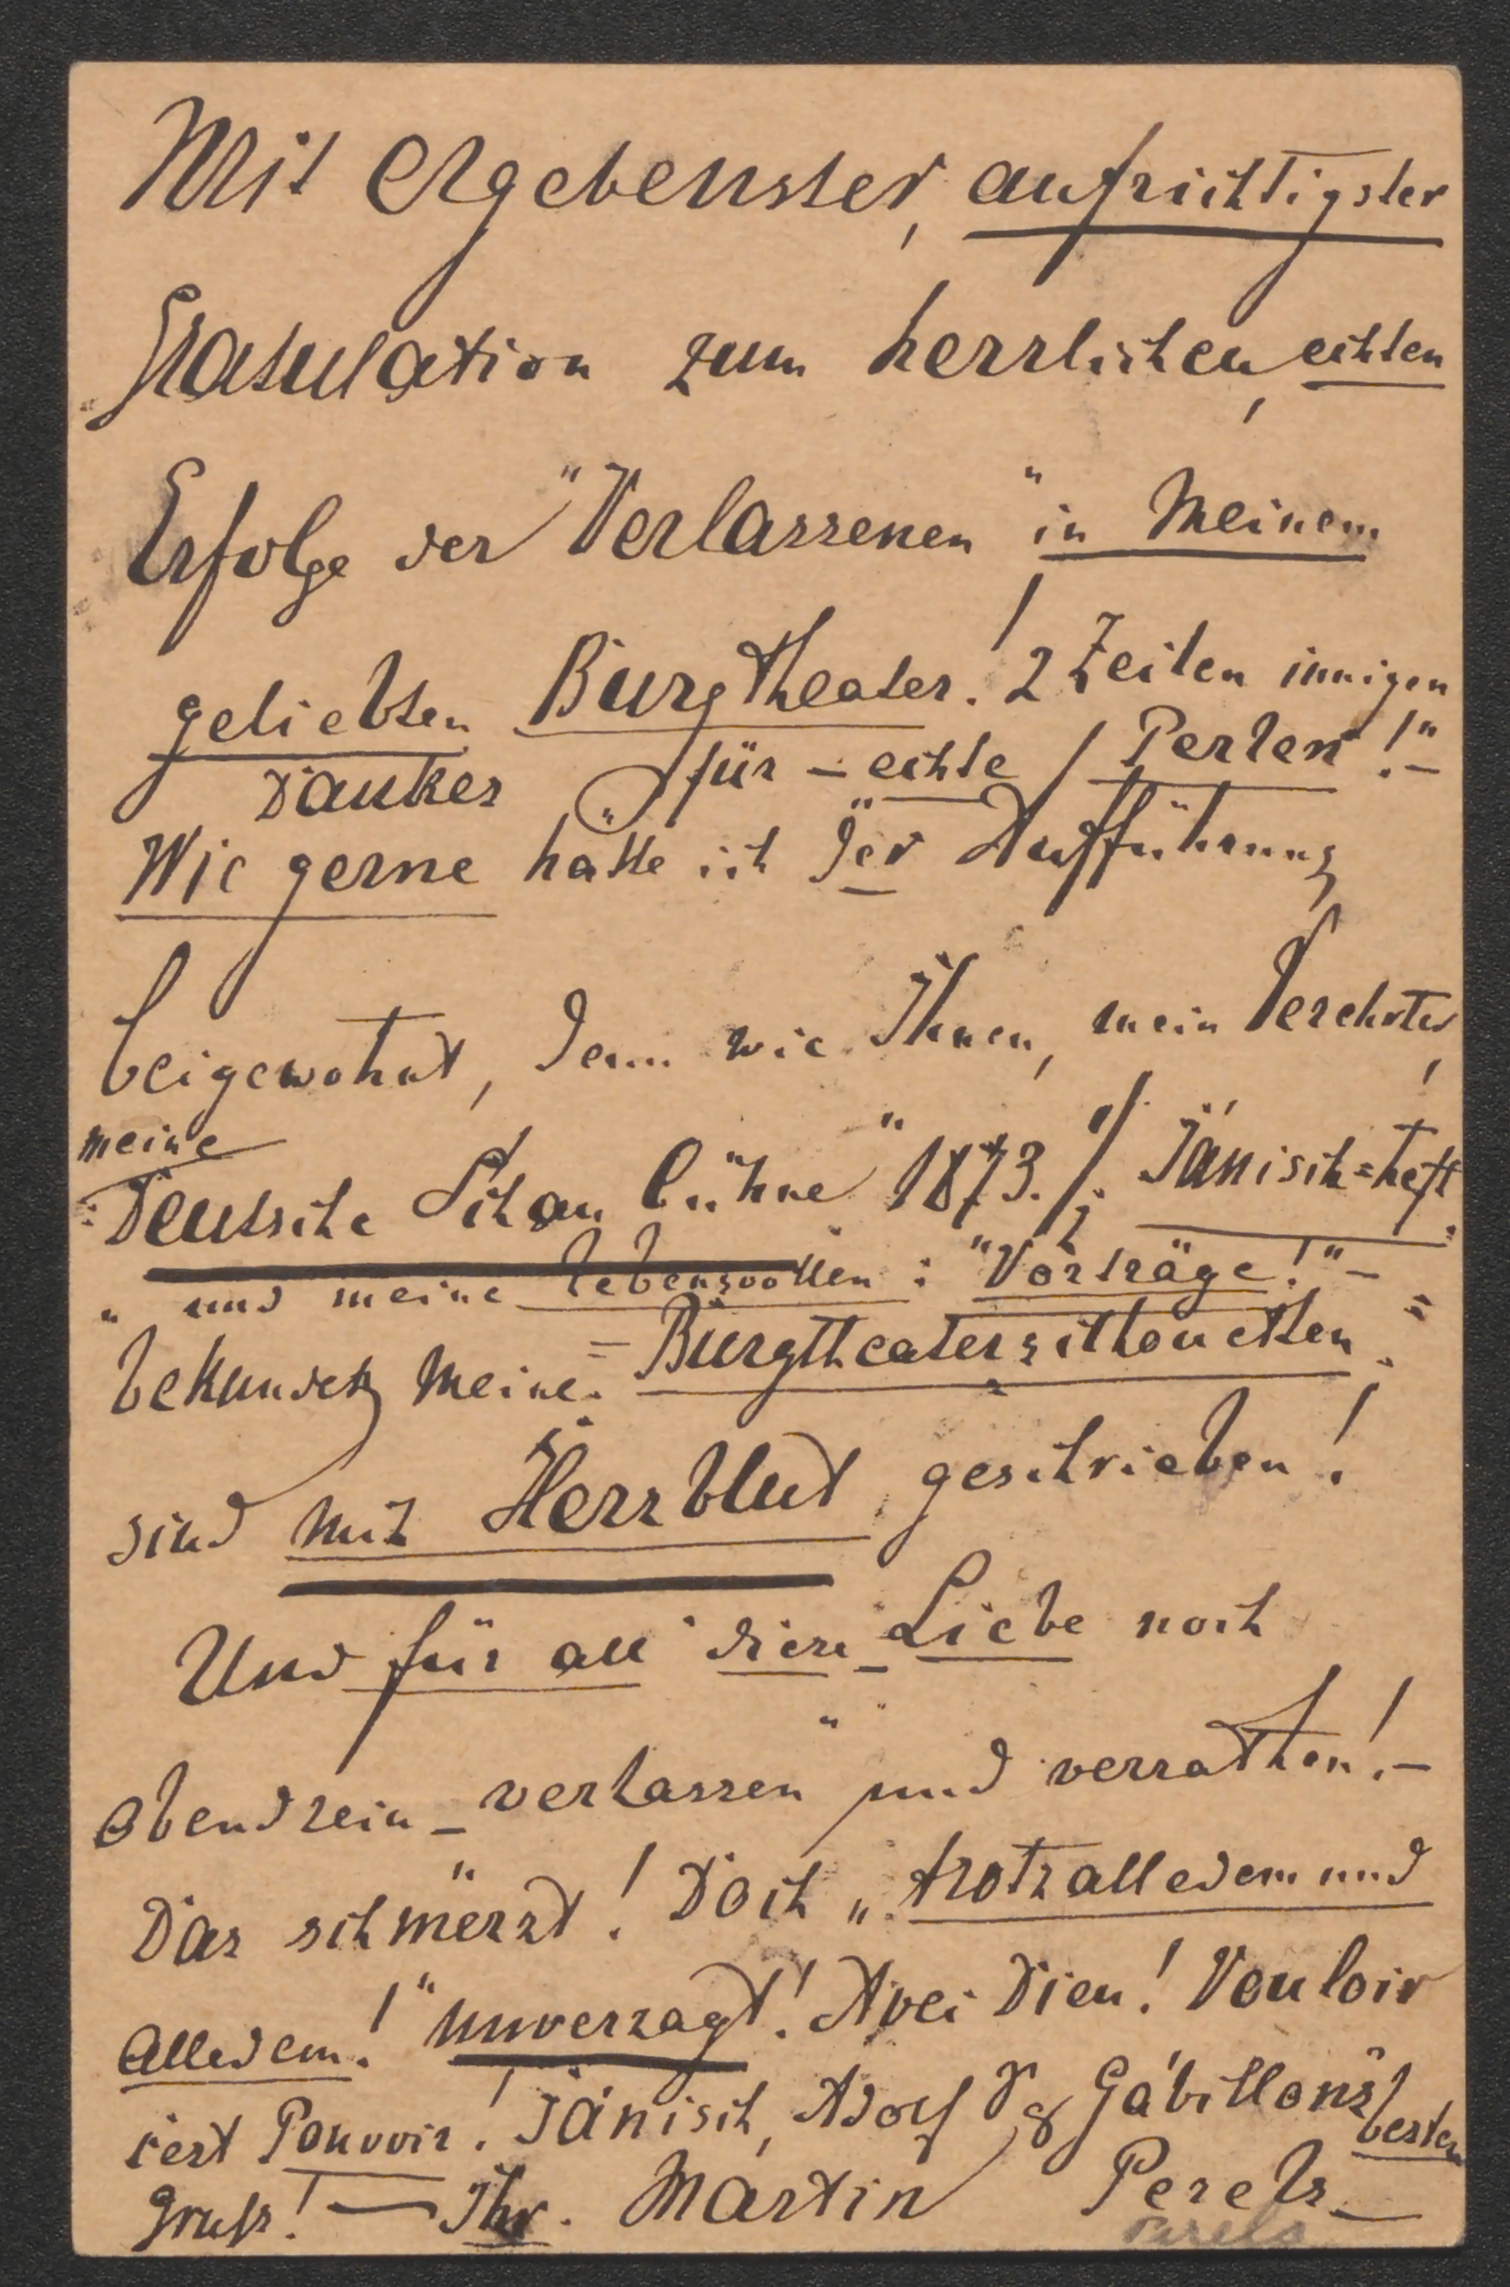 Mit ergebenster, aufrichtigster
Gratulation zum herrlichen, echten
Erfolge der "Verlassenen" in meinem
geliebten Burgtheater! 2 Zeilen innigen
Dankes für – echte Perlen!" –
Wie gerne hätte ich der Aufführung
beigewohnt, denn wie Ihnen, mein Verehrter,
meine
"Deutsche Schaubühne" 1873. /: Jänisch=Heft :/
" und meine lebensvollen: "Vorträge!" –
bekundet, meine = Burgtheatersilhouetten =
sind mit Herzblut geschrieben!
Und für all' diese – Liebe noch
obendrein – "verlassen" und verrathen! –
Das schmerzt! Doch "trotzalledem und
Alledem!" unverzagt! Avec Dieu! Vouloir
c'est Pouvoir! Jänisch, Adolf & Gabillons besten
Gruß! – Ihr. Martin Perels –
Perels